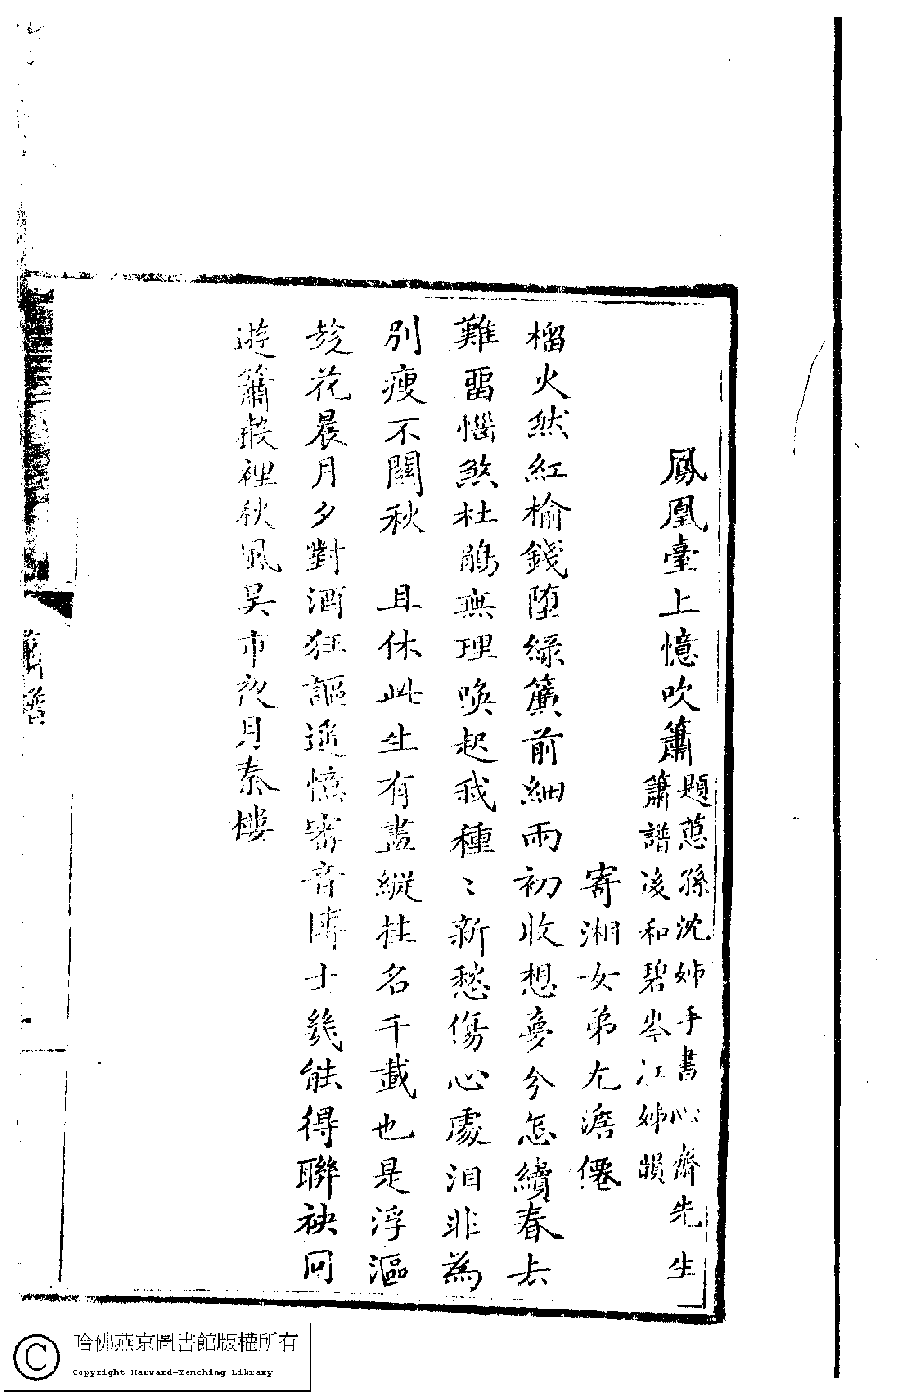 鳳凰臺上憶吹簫
題蕙孫沈姊手書心齋先生
簫譜後和碧岑江姊韻
寄湘女弟尤澹僊
榴火然紅榆錢堕綠簾前細雨初收想夢兮怎續春去
難畱惱煞杜鵑無理喚起我種〻新愁傷心處泪非為
別瘦不關秋　且休此生有盡縱挂名千載也是浮漚
趁花晨月夕對酒狂謳遥憶審音博士幾能得聯袂同
遊簫聲裡秋風吴市夜月秦樓
簫譜
哈佛燕京圖書館版權所有
Copyright Harvard-Yenching Library